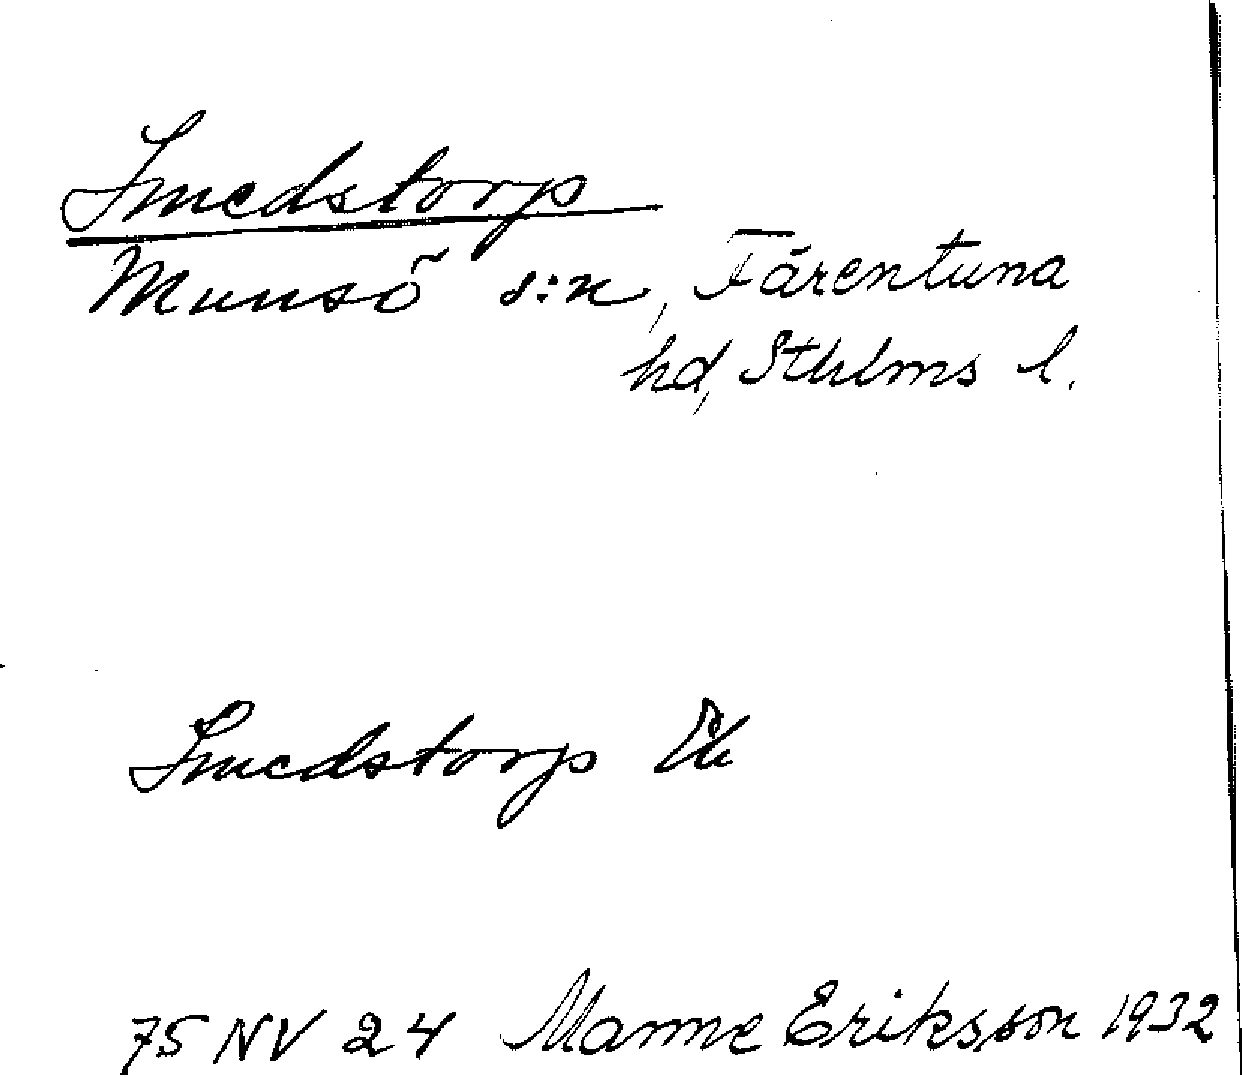 Smedstorp
Munsö s:n, Färentuna
hd, Sthlms l.
Smedstorp Ek
75 NV 24 Manne Eriksson 1932